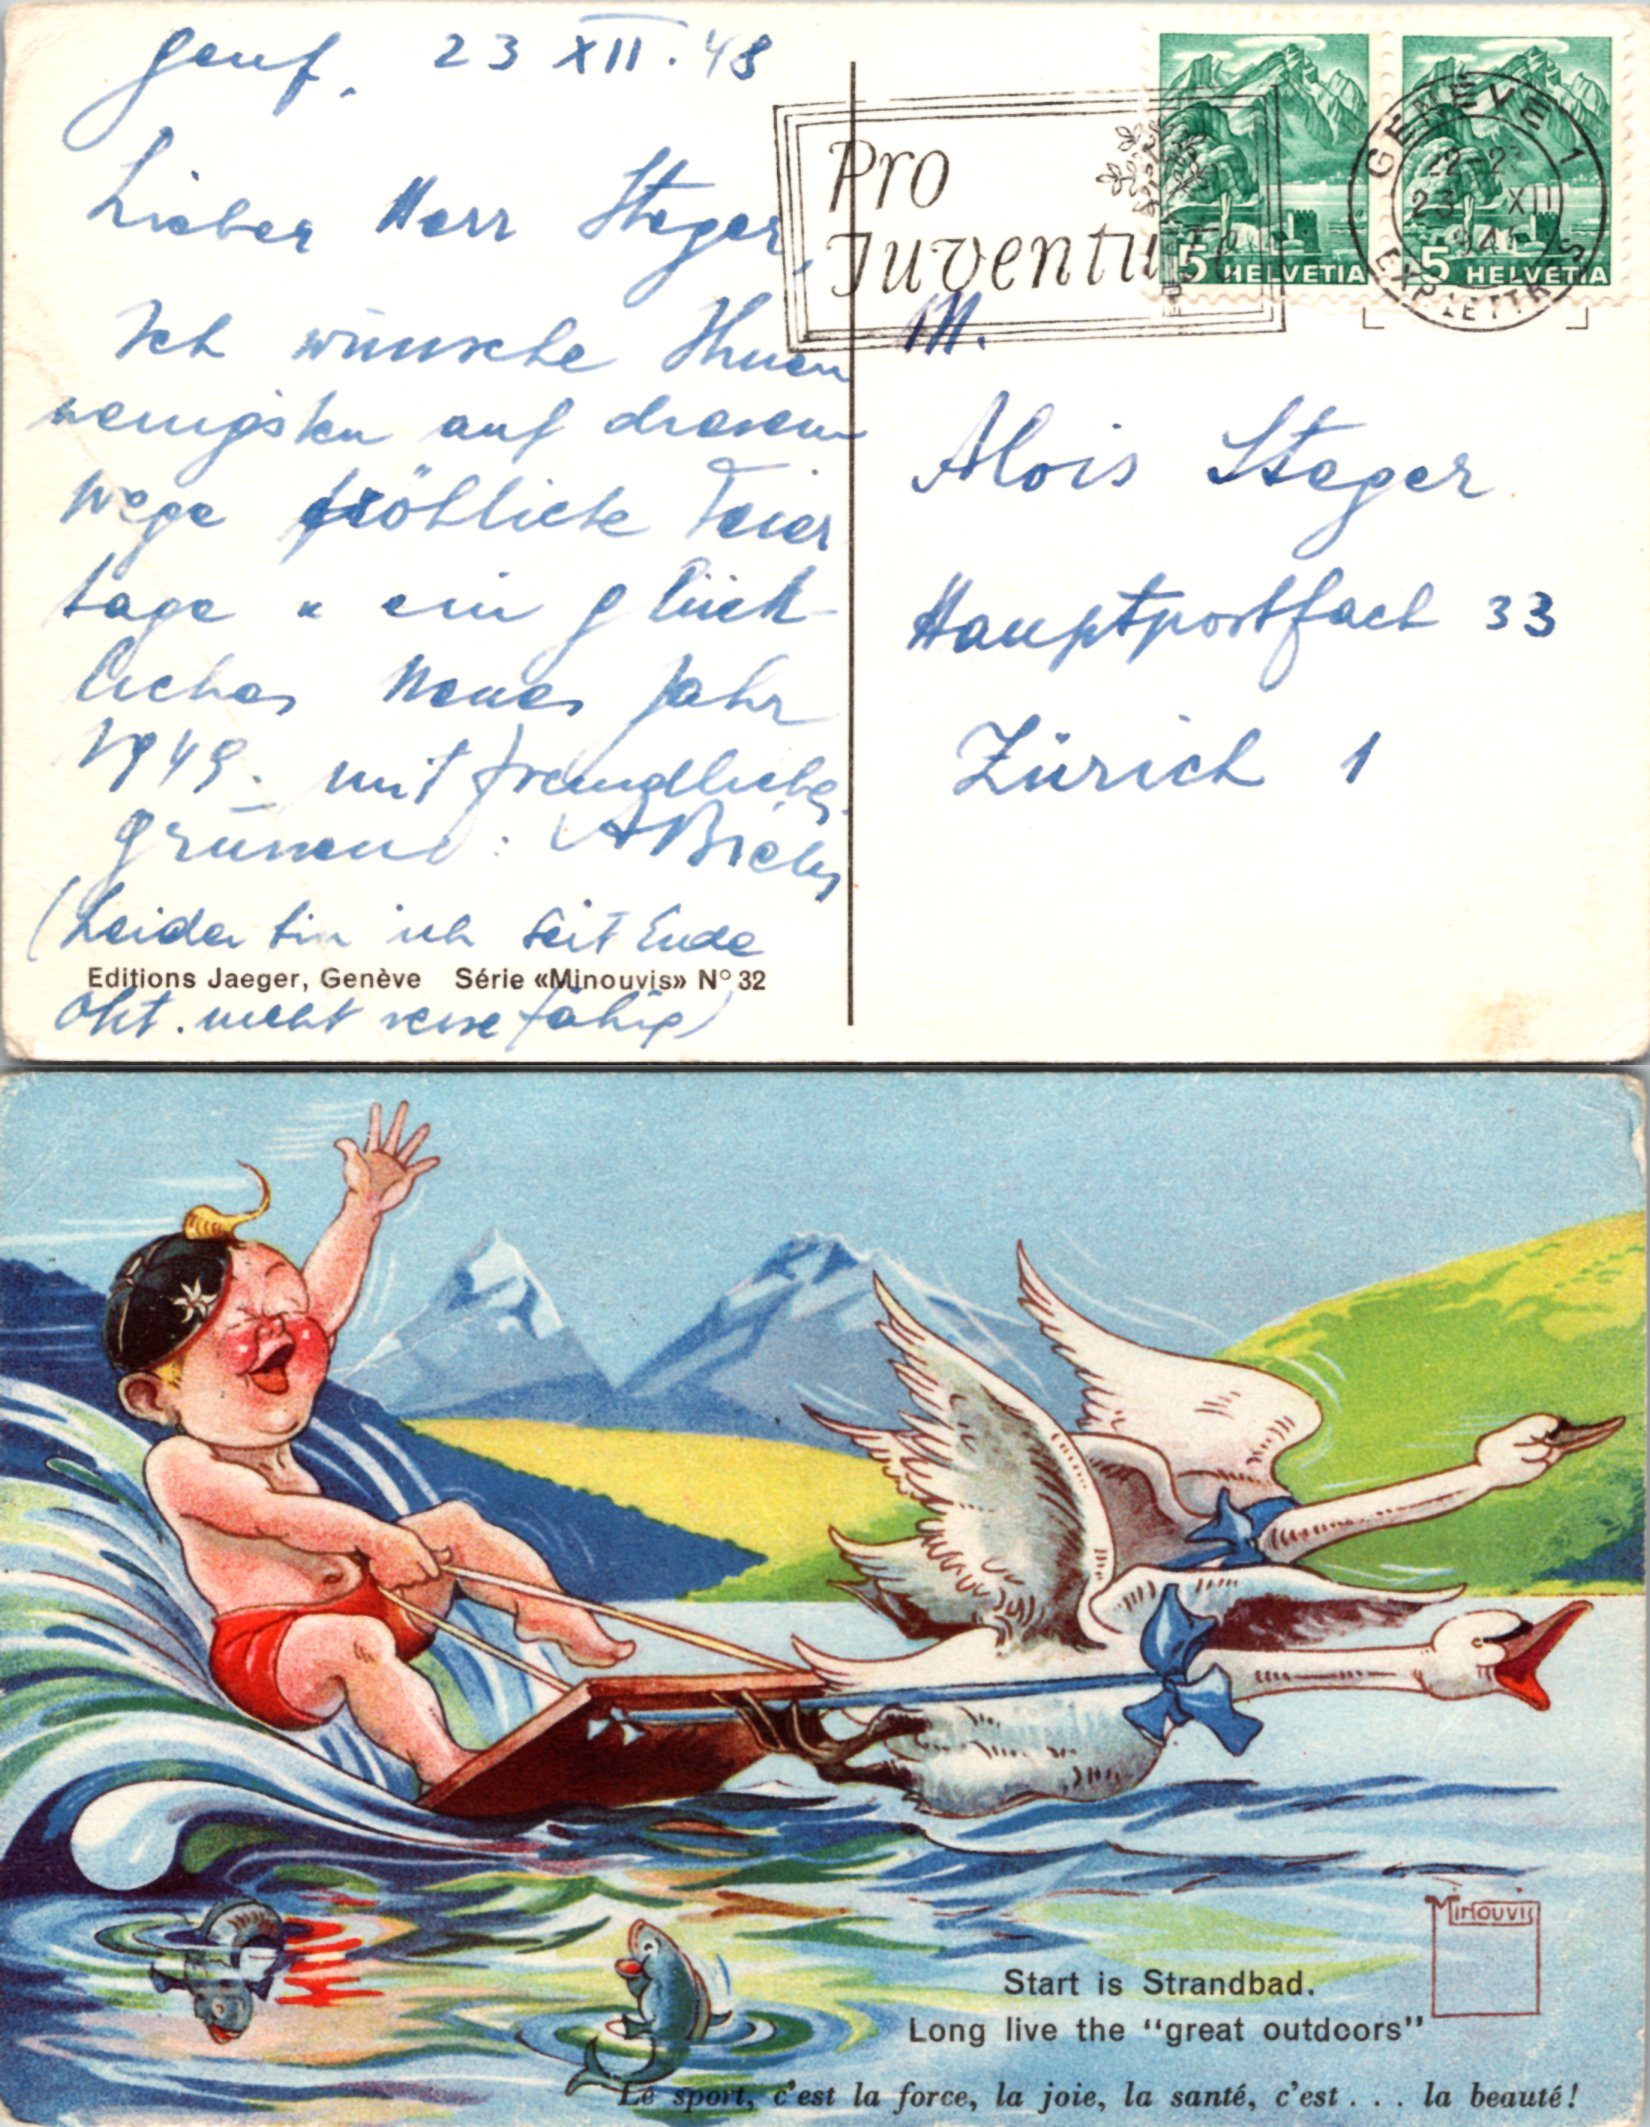 Genf. 23 XII. 48
Lieber Herr Steger,
Ich wünsche Ihnen
wenigsten auf diesem
Wege fröhliche Feier
tage u ein glück-
liches Neues Jahr
1949. mit freundliche
Grüssend:
(Leider bin ich seit Ende
Okt. nicht reisefähig)
Editions Jaeger, Genève Série «Minouvis» N° 32
Pro
Juventute
5 HELVETIA
5 HELVETIA
GENÈVE 1
23 XII
EXP. LETTRES
M.
Alois Steger
Hauptpostfach 33
Zürich 1
MINOUVIS
Start is Strandbad.
Long live the "great outdoors"
Le sport, c'est la force, la joie, la santé, c'est . . . la beauté!